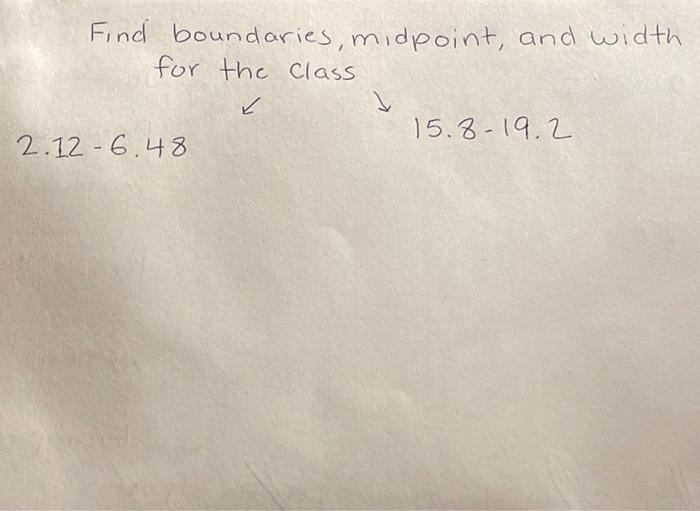 Find boundaries, midpoint, and width
for the class
↙ ↘
2.12-6.48
15.8-19.2